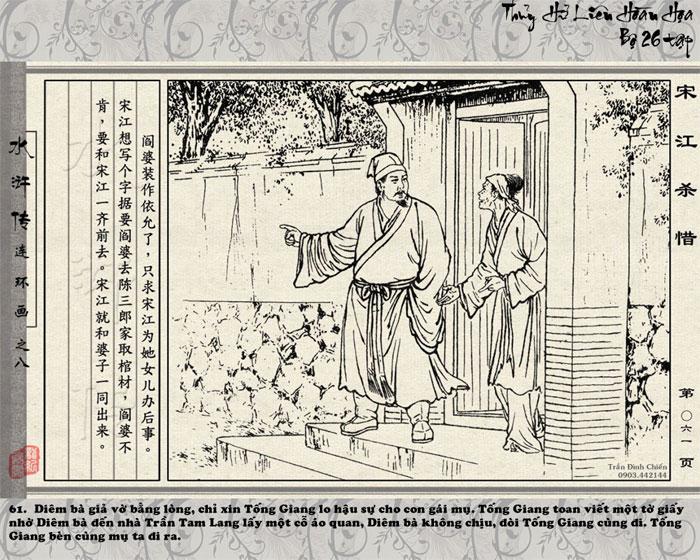 Thủy Hử Liên Hoàn Họa
Bộ 26 tập
宋江杀惜
第〇六一页
水浒传连环画之八
阎婆装作依允了，只求宋江为她女儿办后事。
宋江想写个字据要阎婆去陈三郎家取棺材，阎婆不
肯，要和宋江一齐前去。宋江就和婆子一同出来。
Trần Đình Chiến
0903.442144
61. Diêm bà giả vờ bằng lòng, chỉ xin Tống Giang lo hậu sự cho con gái mụ. Tống Giang toan viết một tờ giấy
nhờ Diêm bà đến nhà Trần Tam Lang lấy một cỗ áo quan, Diêm bà không chịu, đòi Tống Giang cùng đi. Tống
Giang bèn cùng mụ ta đi ra.